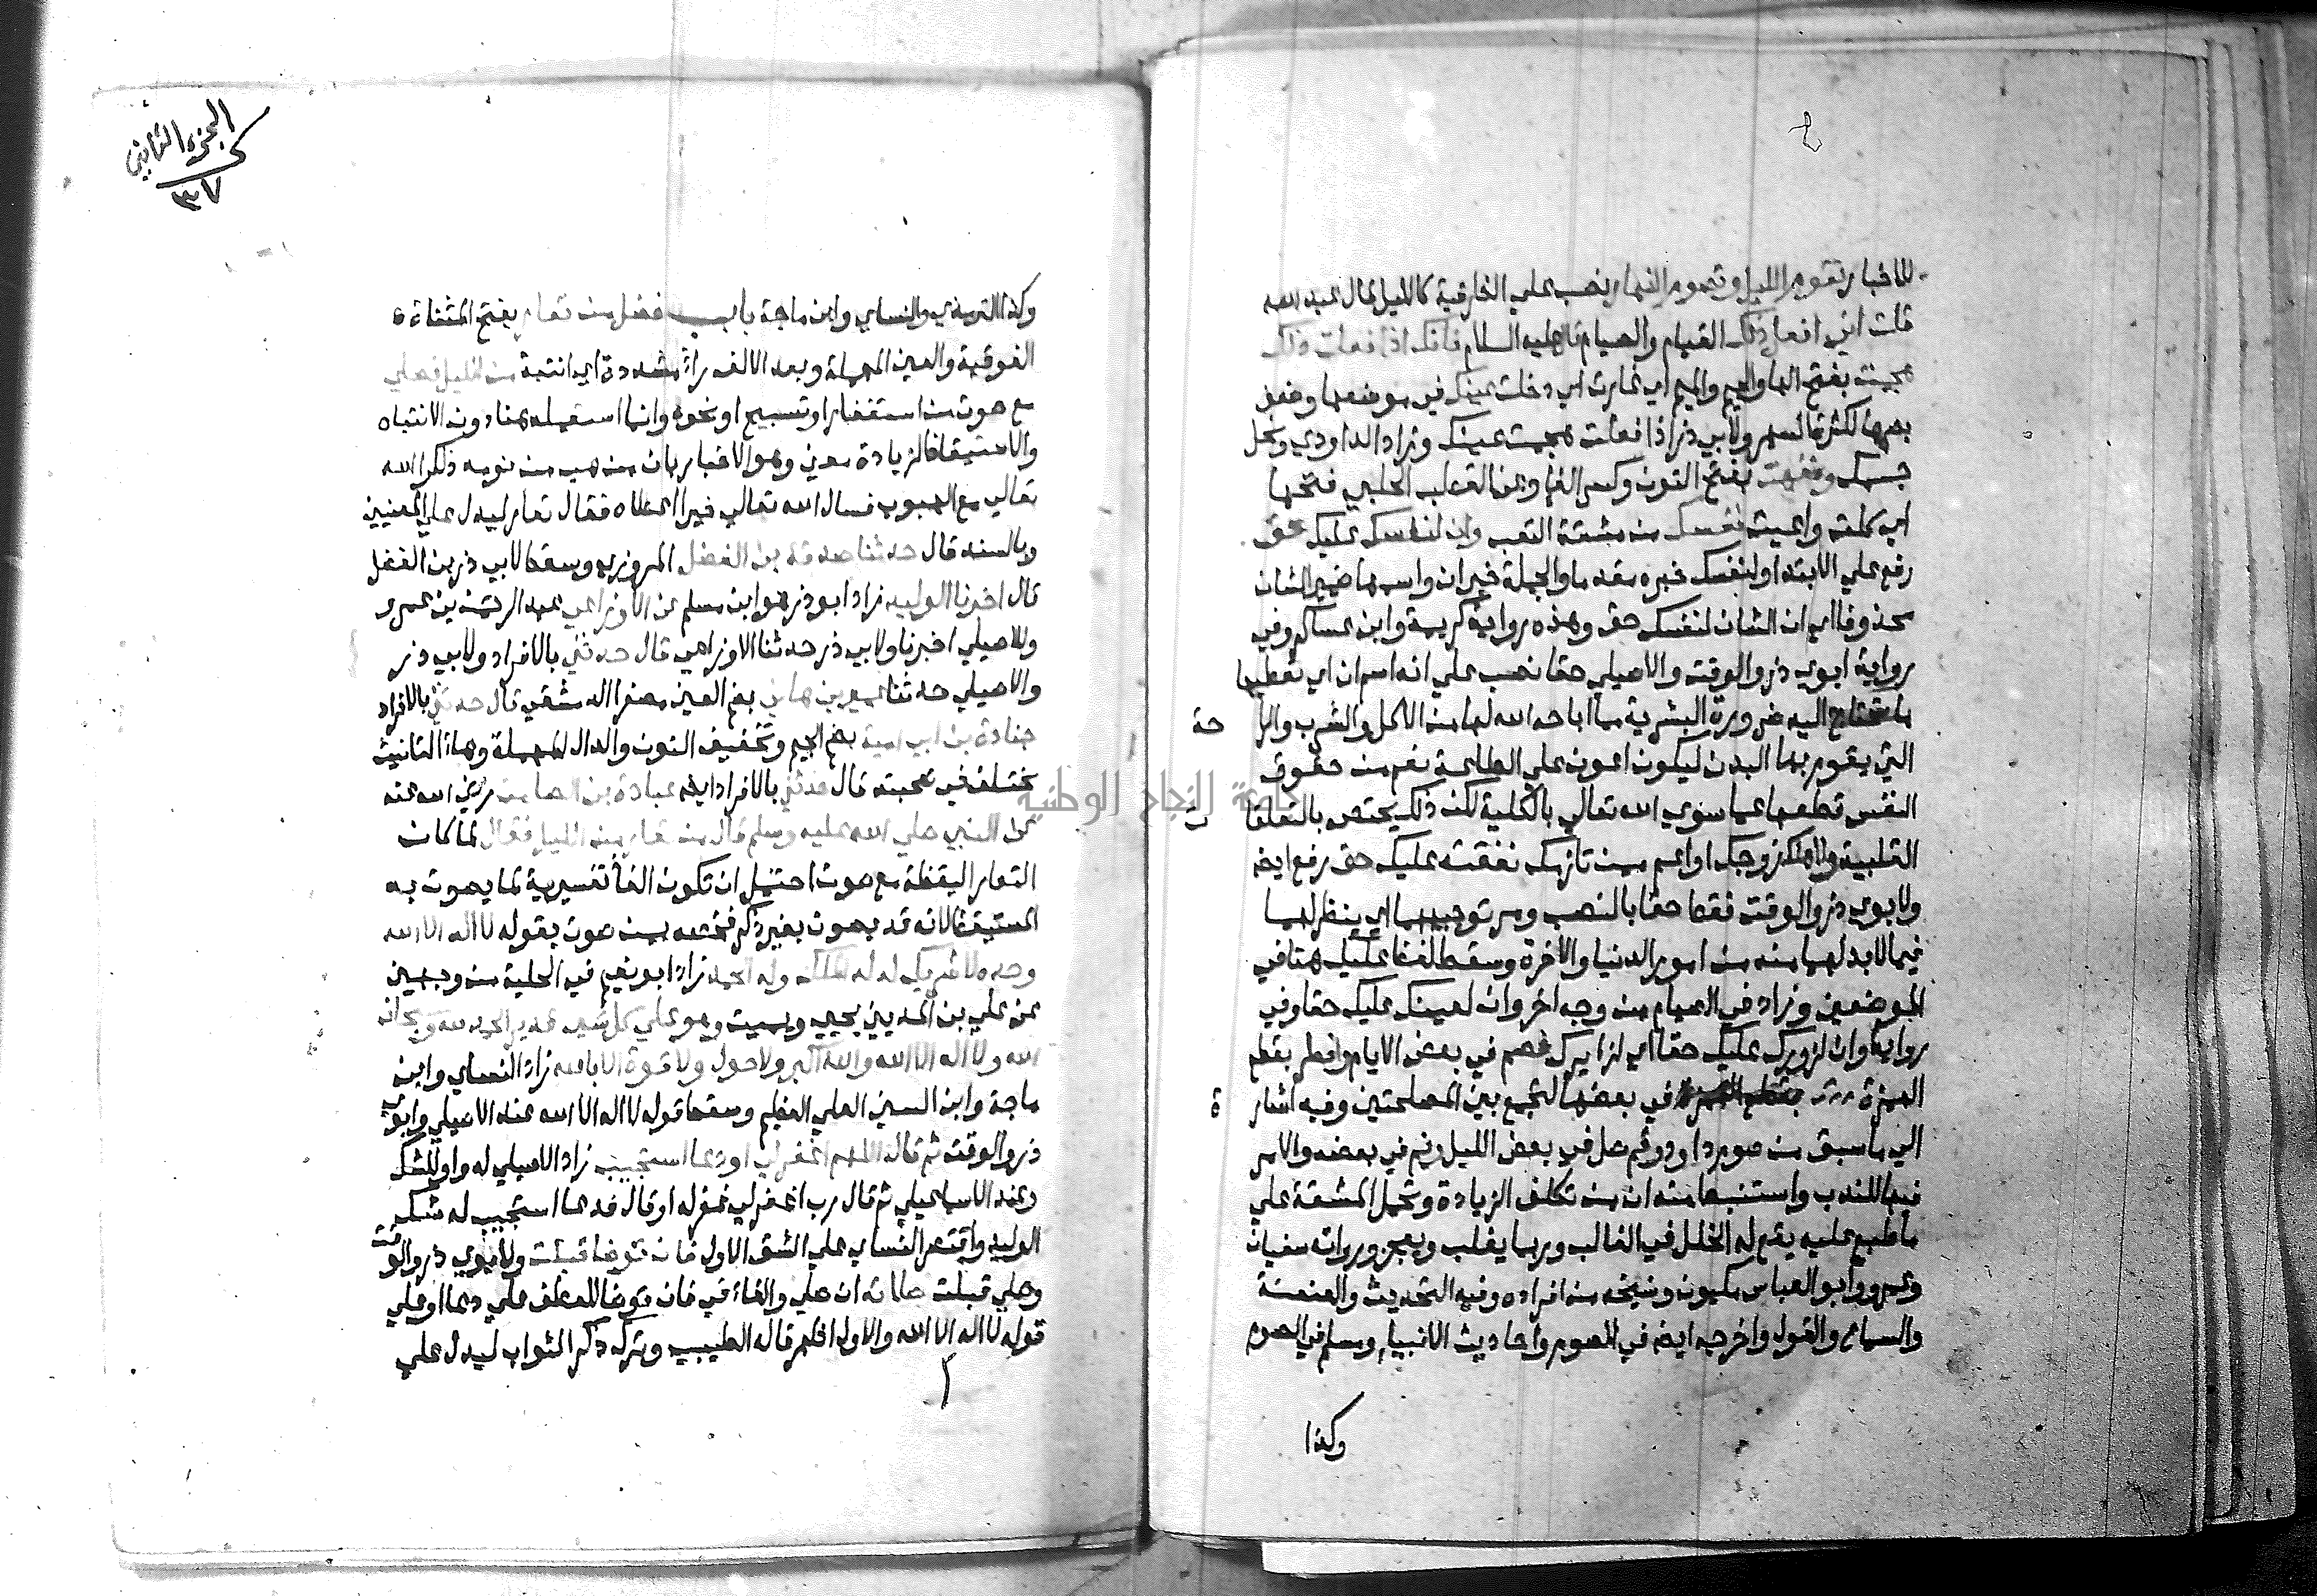 للاخبار تقوم الليل وتصوم النهار نصب علي الظرفية كالليل قال عبد الله
قلت اني افعل ذلك القيام والصيام قال عليه السلام فانك اذا فعلت ذلك
هجمت بفتح الها والجيم والميم اي غارت اي دخلت عينك في موضعها وضعف
بصرها لكثرة السهر ولابي ذر اذا فعلت هجمت عينك وزاد الداودي ونحل
جسمك ونفهت بفتح النون وكسر الفا وعن القطب الحلبي فتحها
اي كلت واعيت نفسك من مشقة التعب وان لنفسك عليك حق
رفع علي الابتدا ولنفسك خبره مقدما والجملة خبر ان واسمها ضمير الشان
محذوفا اي ان الشان لنفسك حق وهذه رواية كريمة وابن عساكر وفي
رواية ابوي ذر والوقت والاصيلي حقا نصب علي انه اسم ان اي تعطيها
ما تحتاج اليه ضرورة البشرية مما اباحه الله لها من الاكل والشرب والرا حة
التي يقوم بها البدن ليكون اعون علي الطاعة نعم من حقوق
النفس قطعها عما سوي الله تعالي بالكلية لكن ذلك يختص بالتعلقا ت
القلبية ولاهلك زوجك او اعم ممن تلزمك نفقته عليك حق رفع ايضا
ولابوي ذر والوقت فقط حقا بالنصب ومر توجيههما اي ينظر لهما
فيما لابد لهما منه من امور الدنيا والاخرة وسقط لفظ عليك هنا في
الموضعين وزاد في الصيام من وجه اخر وان لعينك عليك حقا وفي
رواية وان لزورك عليك حقا اي لزايرك فصم في بعض الايام وافطر بقطع
الهمزة في بعضها لتجمع بين المصلحتين وفيه اشار ة
الي ما سبق من صوم داود وقم صل في بعض الليل ونم في بعضه والامر
فيها للندب واستنبط منه ان من تكلف الزيادة وتحمل المشقة علي
ما طبع عليه يقع له الخلل في الغالب وربما يغلب ويعجز ورواته سفيان
وعمرو وابو العباس مكيون وشيخه من افراده وفيه التحديث والعنعنة
والسماع والقول واخرجه ايضا في الصوم واحاديث الانبياء ومسلم في الصوم
وكذا
الجزء الثاني
٣٧
وكذا الترمذي والنساي وابن ماجة باب فضل من تعار بفتح المثناة
الفوقية والعين المهملة وبعد الالف راء مشددة اي انتبه من الليل فصلي
مع صوت من استغفار او تسبيح او نحوه وانما استعمله هنا دون الانتباه
والاستيقاظ لزيادة معني وهو الاخبار بان من هب من نومه ذكر الله
تعالي مع الهبوب فسال الله تعالي خيرا اعطاه فقال تعار ليدل علي المعنيين
وبالسند قال حدثنا صدقة بن الفضل المروزي وسقط لابي ذر بن الفضل
قال اخبرنا الوليد زاد ابو ذر هو ابن مسلم عن الاوزاعي عبد الرحمن بن عمرو
وللاصيلي اخبرنا ولابي ذر حدثنا الاوزاعي قال حدثني بالافراد ولابي ذر
والاصيلي حدثنا عمير بن هاني بضم العين مصغرا الدمشقي قال حدثني بالافراد
جنادة بن ابي امية بضم الجيم وتخفيف النون والدال المهملة وهاء التانيث
مختلف في صحبته قال حدثني بالافراد ايضا عبادة بن الصامت رضي الله عنه
عن النبي صلي الله عليه وسلم قال من تعار من الليل فقال لما كان
التعار اليقظة مع صوت احتمل ان تكون الفا تفسيرية لما يصوت به
المستيقظ لانه قد يصوت بغير ذكر فخصه بمن صوت بقوله لا اله الا الله
وحده لا شريك له له الملك وله الحمد زاد ابو نعيم في الحلية من وجهين
عن علي بن المديني يحيي ويميت وهو علي كل شيء قدير الحمد لله وسبحان
الله ولا اله الا الله والله اكبر ولا حول ولا قوة الا بالله زاد النساي وابن
ماجة وابن السني العلي العظيم وسقط قوله لا اله الا الله عند الاصيلي وابوي
ذر والوقت ثم قال اللهم اغفر لي او دعا استجيب زاد الاصيلي له واو للشك
وعند الاسماعيلي ثم قال رب اغفر لي غفر له او قال فدعا استجيب له شك
الوليد واقتصر النساي علي الشق الاول فان توضا قبلت ولابوي ذر والوقت
وصلي قبلت صلاته ان صلي والفاء في فان توضا للعطف علي دعا او علي
قوله لا اله الا الله والاول اظهر قاله الطيبي وترك ذكر الثواب ليدل علي